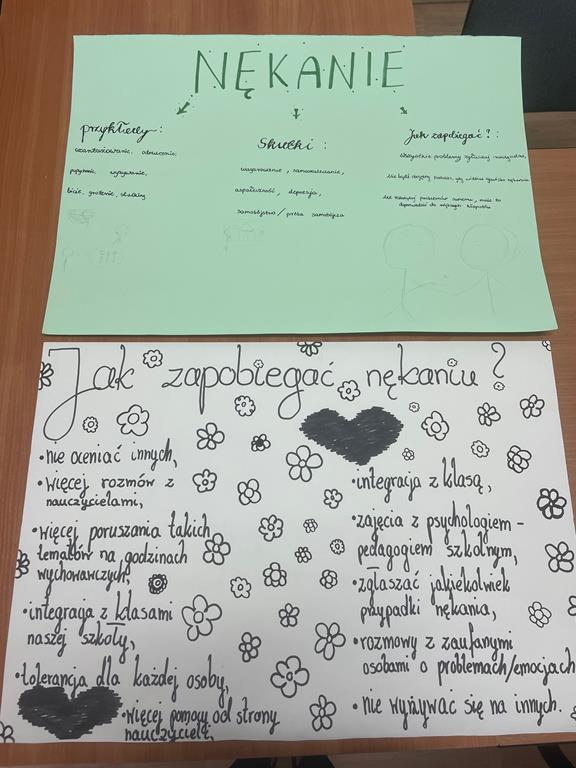 NĘKANIE
przykłady :
szantażowanie, obrażanie,
popychanie, wyzywanie,
bicie, grożenie, stalking
Skutki :
wagarowanie, samookaleczanie,
aspołeczność, depresja,
samobójstwo / próba samobójcza
Jak zapobiegać? :
wszystkie problemy zgłaszaj
nie bądź obojętny
nie problemów samemu, może to
doprowadzić do większych kłopotów
Jak zapobiegać nękaniu?
•nie oceniać innych,
•więcej rozmów z
nauczycielami,
•więcej poruszania takich
tematów na godzinach
wychowawczych,
•integracja z klasami
naszej szkoły,
•tolerancja dla każdej osoby,
•więcej pomocy od strony
nauczycieli,
•integracja z klasą,
•zajęcia z psychologiem -
pedagogiem szkolnym,
•zgłaszać jakiekolwiek
przypadki nękania,
•rozmowy z zaufanymi
osobami o problemach/emocjach
•nie wyżywać się na innych.